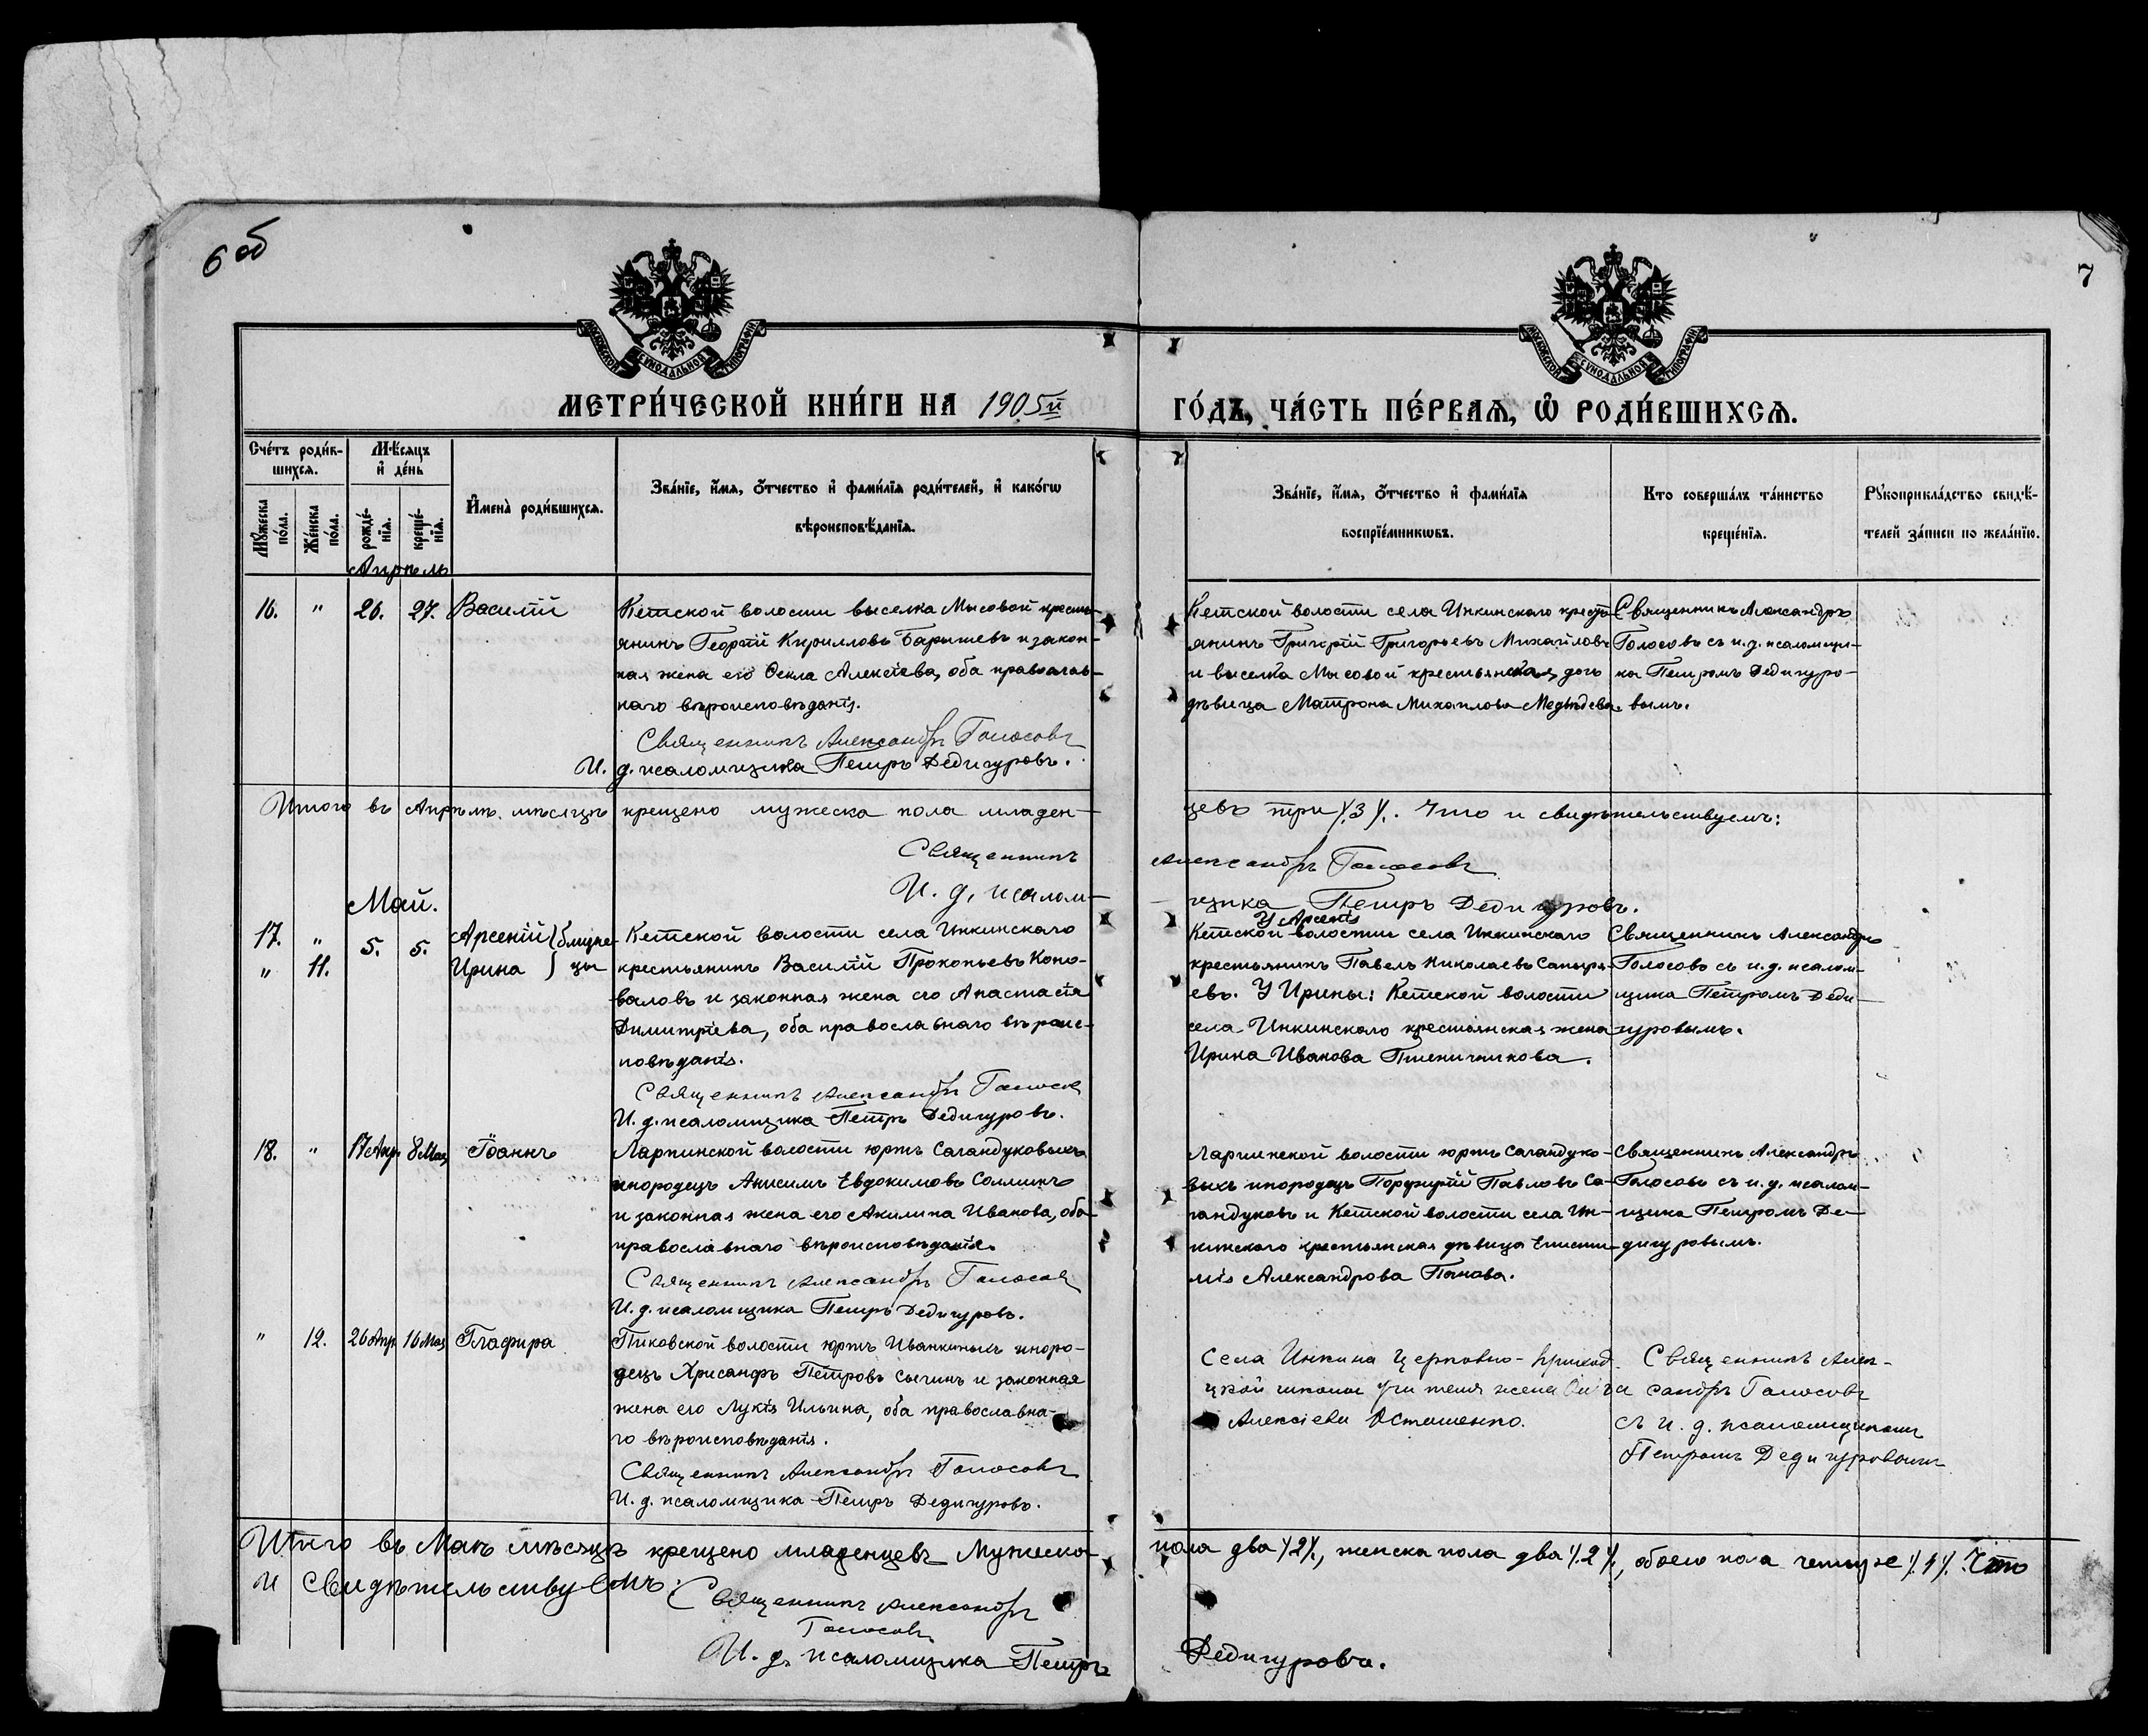 6 об
7
МОСКОВСКОЙ СѴНОДАЛЬНОЙ ТИПОГРАФІИ
МОСКОВСКОЙ СѴНОДАЛЬНОЙ ТИПОГРАФІИ
МЕТРИ́ЧЕСКОЙ КНИ́ГИ НА 1905й
ГО́ДЪ, ЧА́СТЬ ПЕ́РВАѦ, Ѡ РОДИ́ВШИХСѦ.
Сче́тъ роди́в-
шихсѧ.
Мѣ́сѧцъ
и҆ де́нь
Мꙋ́жеска по́ла.
Же́нска по́ла.
рожде́-
нїѧ.
креще́-
нїѧ.
И҆мена̀ роди́вшихсѧ.
Зва́нїе, и҆́мѧ, ѻ҆́тчество и҆ фами́лїѧ роди́телей, и҆ како́гѡ
вѣроисповѣ́данїѧ.
Зва́нїе, и҆́мѧ, ѻ҆́тчество и҆ фами́лїѧ
воспрїе́мникѡвъ.
Кто̀ соверша́лъ та́инство
креще́нїѧ.
Рꙋкоприкла́дство свидѣ́-
телей за́писи по жела́нїю.
Апрѣль
16. " 26. 27. Василій
Кетской волости выселка Мысовой кресть-
янинъ Георгій Кирилловъ Барышевъ и закон-
ная жена его Ѳекла Алексіева, оба православ-
наго вѣроисповѣданія.
Священникъ Александръ Голосовъ
И. д. псаломщика Петръ Дедигуровъ.
Кетской волости села Инкинскаго кресть-
янинъ Григорій Григорьевъ Михайловъ
и выселка Мысовой крестьянская дочь
дѣвица Матрона Михаилова Медвѣдева.
Священникъ Александръ
Голосовъ съ и. д. псаломщи-
ка Петромъ Дедигуро-
вымъ.
Итого въ Апрѣлѣ мѣсяцѣ крещено мужеска пола младен-
цевъ три /.3/. Что и свидѣтельствуемъ:
Священникъ Александръ Голосовъ
И. д. псалом-
щика Петръ Дедигуровъ.
Май.
17. " 5. 5. Арсеній } близне-
" 11. Ирина } цы
Кетской волости села Инкинскаго
крестьянинъ Василій Прокопьевъ Коно-
валовъ и законная жена его Анастасія
Димитріева, оба православнаго вѣроис-
повѣданія.
Священникъ Александръ Голосов
И. д. псаломщика Петръ Дедигуровъ.
У Арсенія
Кетской волости села Инкинскаго
крестьянинъ Павелъ Николаевъ
евъ. У Ирины: Кетской волости
села Инкинскаго крестьянская жена
Ирина Иванова Пшеничникова.
Священникъ Александръ
Голосовъ съ и. д. псалом-
щика Петромъ Деди-
гуровымъ.
18. " 17 Апр. 8 Мая Іоаннъ
Ларпинской волости юртъ Сагандуковыхъ
инородецъ Анисимъ Евдокимовъ Соллинъ
и законная жена его Акилина Иванова, оба
православнаго вѣроисповѣданія.
Священникъ Александръ Голосов
И. д. псаломщика Петръ Дедигуровъ.
Ларпинской волости юртъ Сагандуко-
выхъ инородецъ Порфирій Павловъ Са-
гандуковъ и Кетской волости села Ин-
кинскаго крестьянская дѣвица Еписти-
мія Александрова Панова.
Священникъ Александръ
Голосовъ съ и. д. псалом-
щика Петромъ Де-
дигуровымъ.
" 12. 26 Апр. 16 Мая Глафира
Пиковской волости юртъ Иванкиныхъ иноро-
децъ Хрисанфъ Петровъ Сычинъ и законная
жена его Лукія Ильина, оба православна-
го вѣроисповѣданія.
Священникъ Александръ Голосовъ
И. д. псаломщика Петръ Дедигуровъ.
Села Инкина церковно-приход.
школы учителя жена
Алексіева Осташенко.
Священникъ Алек-
сандръ Голосовъ
съ и. д. псаломщикомъ
Петромъ Дедигуровымъ
Итого въ Маѣ мѣсяцѣ крещено младенцевъ Мужеска
пола два /.2/., женска пола два /.2/., обоего пола четыре /.4/. Что
и свидѣтельствуемъ:
Священникъ Александръ
Голосовъ
И. д. псаломщика Петръ
Дедигуровъ.